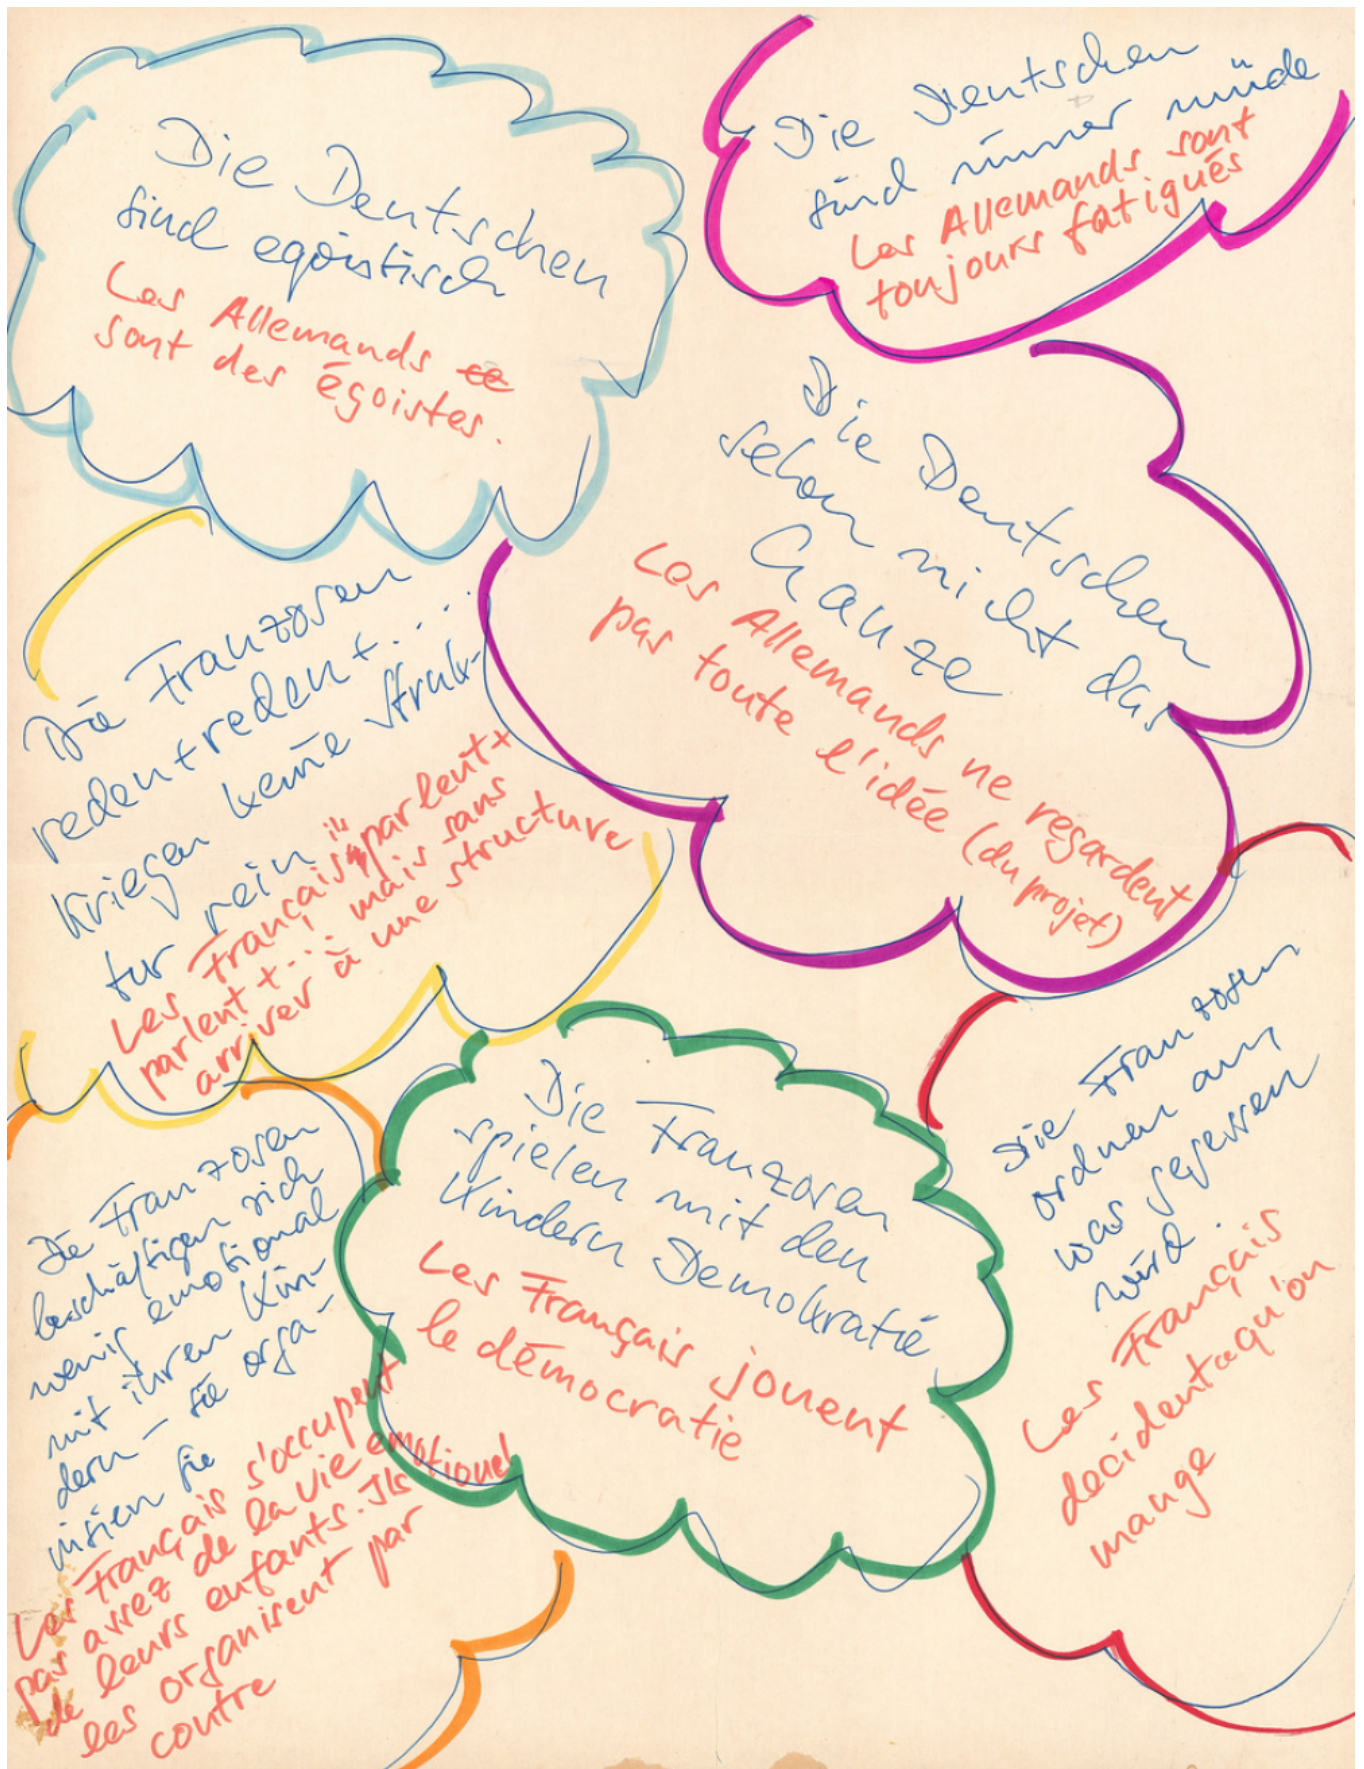 Die Deutschen
sind egoistisch
Les Allemands
sont des égoistes.
Die Deutschen
sind immer müde
Les Allemands sont
toujours fatigués
Die Deutschen
sehen nicht das
Ganze
Les Allemands ne regardent
pas toute l'idée (du projet)
Die Franzosen
reden + reden + . . . .
kriegen keine Struk-
tur rein
Les Français, ils parlent +
parlent + ... mais sans
arriver à une structure
Die Franzosen
spielen mit den
Kindern Demokratie
Les Français jouent
le démocratie
Die Franzosen
ordnen an,
was gegessen
wird.
Les Français
decident qu'on
mange
Die Franzosen
beschäftigen sich
wenig emotional
mit ihren Kin-
dern – sie orga-
nisien sie
Les Français s'occupent
pas assez de la vie emotionel
de leurs enfants. Ils
les organisent par
contre